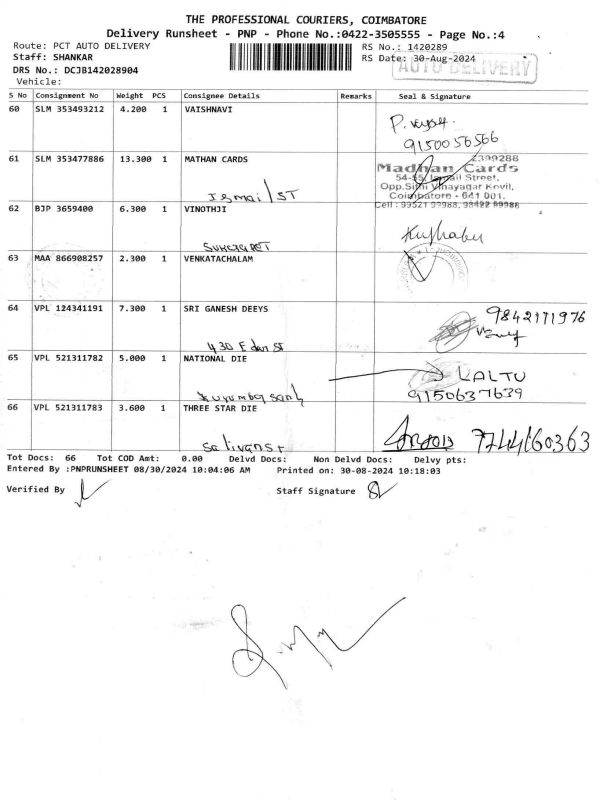 THE PROFESSIONAL COURIERS, COIMBATORE
Delivery Runsheet - PNP - Phone No.:0422-3505555 - Page No.:4
Route: PCT AUTO DELIVERY
RS No.: 1420289
Staff: SHANKAR
RS Date: 30-Aug-2024
AUTO DELIVERY
DRS No.: DCJB142028904
Vehicle:
S No Consignment No Weight PCS Consignee Details Remarks Seal & Signature
60 SLM 353493212 4.200 1 VAISHNAVI
9150056566
61 SLM 353477886 13.300 1 MATHAN CARDS
2399288
Madhan Cards
54-55, Ismail Street,
Opp.Sithi Vinayagar Kovil,
Coimbatore - 641 001.
Cell : 99521 99988, 98422 99988
Ismail ST
62 BJP 3659400 6.300 1 VINOTHJI
63 MAA 866908257 2.300 1 VENKATACHALAM
64 VPL 124341191 7.300 1 SRI GANESH DEEYS
9842171976
430 E dan ST
65 VPL 521311782 5.000 1 NATIONAL DIE
LALTU
9150637639
66 VPL 521311783 3.600 1 THREE STAR DIE
7244160363
Tot Docs: 66 Tot COD Amt: 0.00 Delvd Docs: Non Delvd Docs: Delvy pts:
Entered By :PNPRUNSHEET 08/30/2024 10:04:06 AM Printed on: 30-08-2024 10:18:03
Verified By
Staff Signature